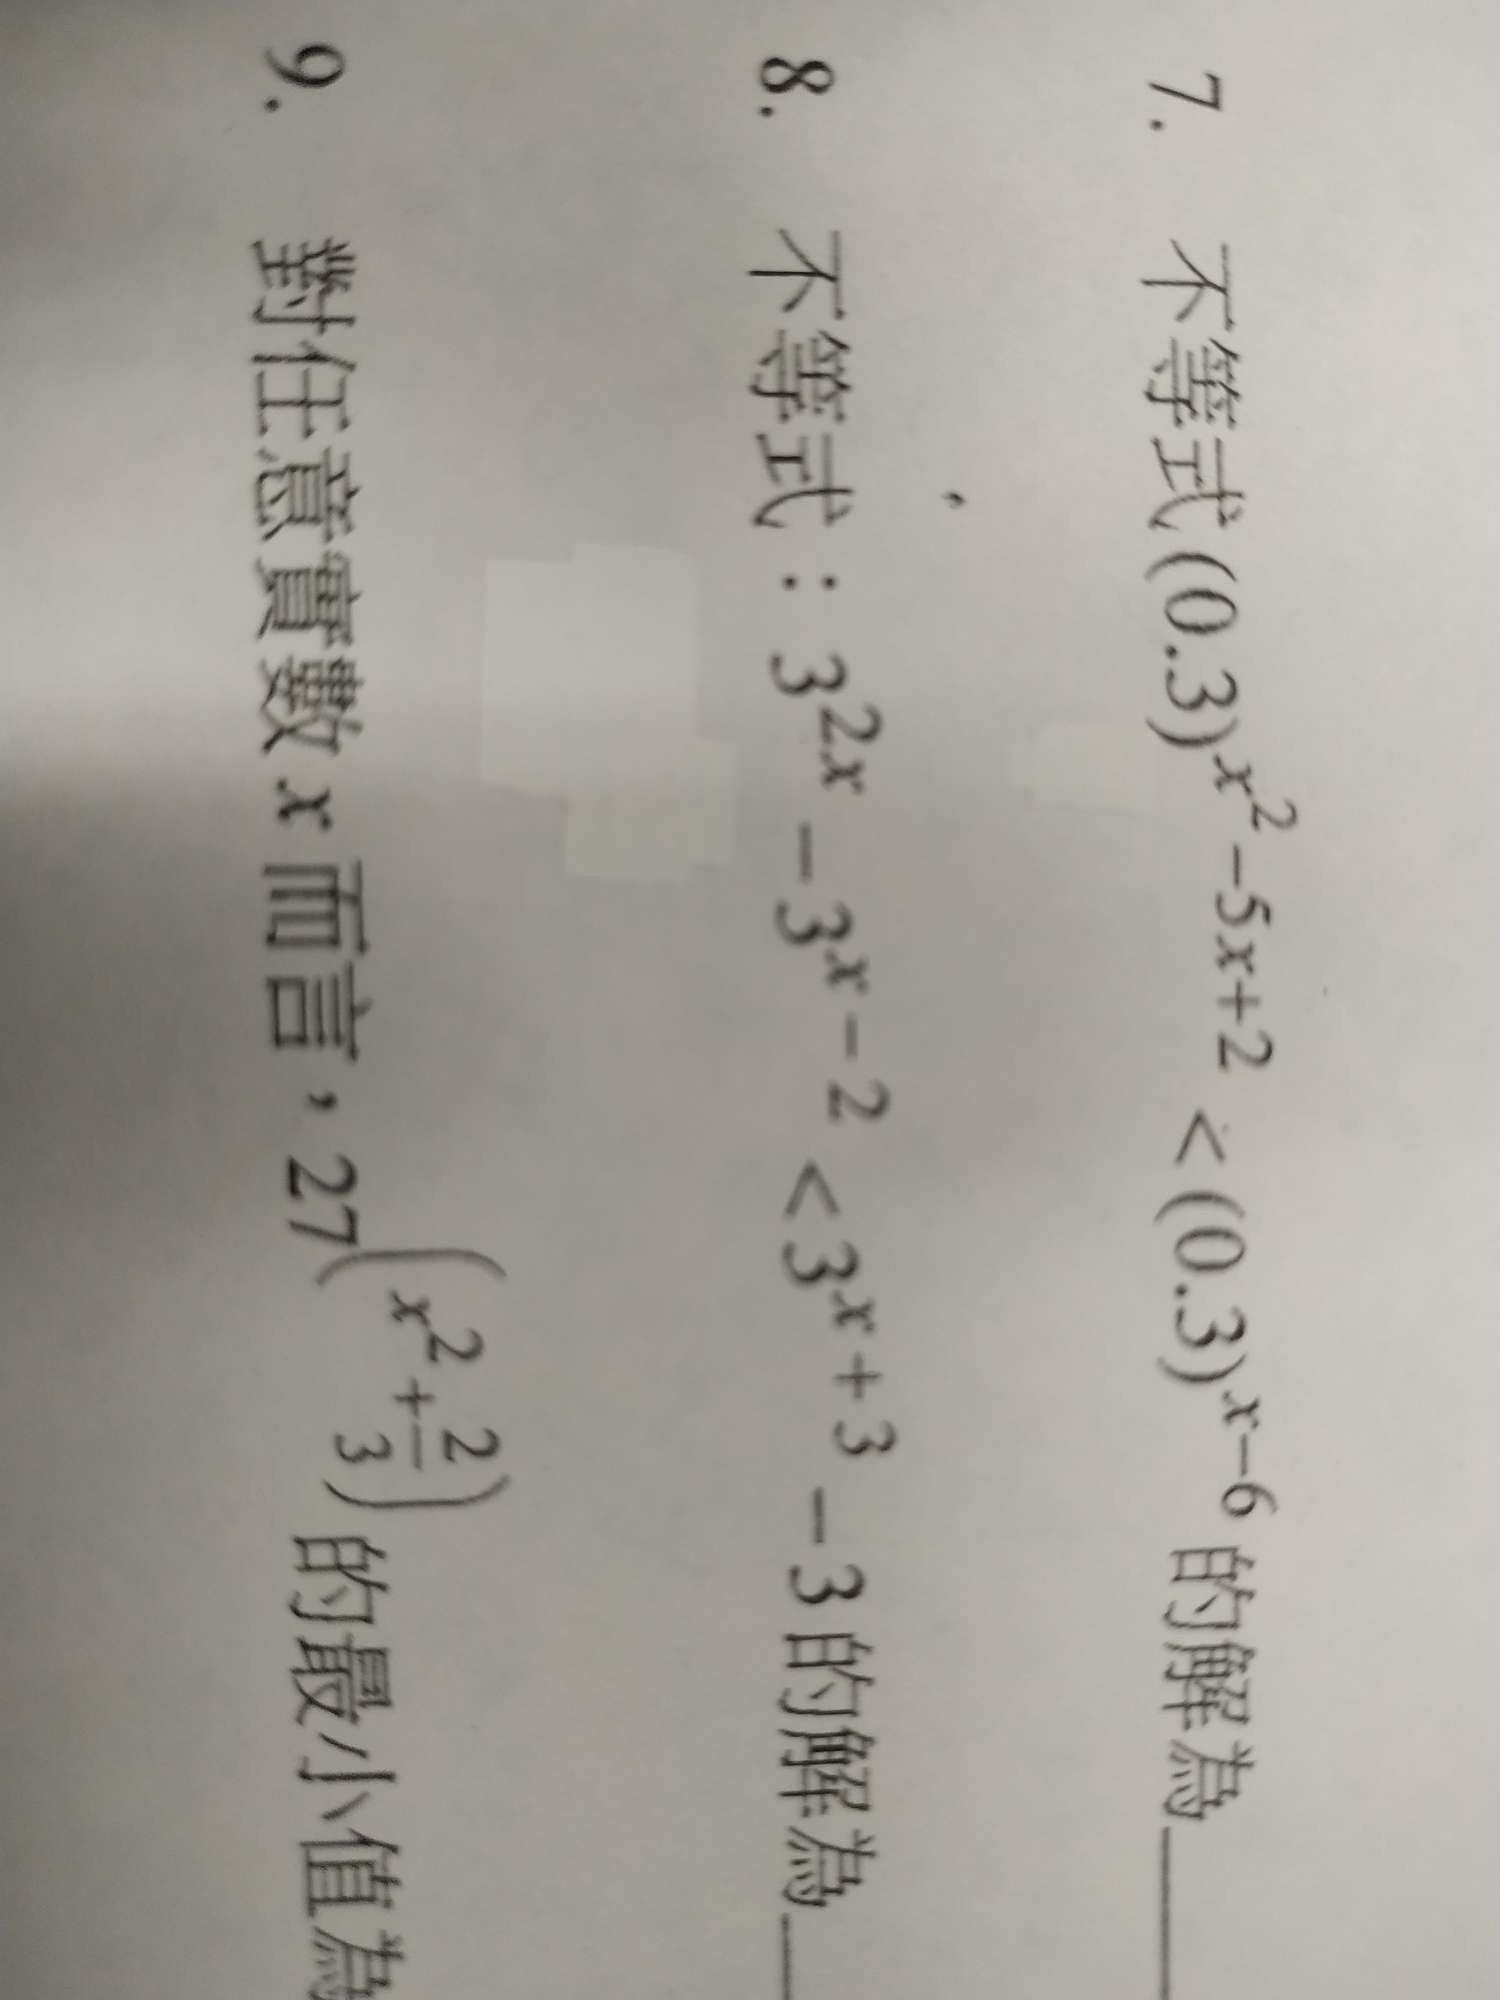 7. 不等式(0.3)^{x^2-5x+2} < (0.3)^{x-6} 的解為____
8. 不等式：3^{2x} - 3^{x-2} < 3^{x+3} - 3 的解為__
9. 對任意實數 x 而言，27^{(x^2+\frac{2}{3})} 的最小值為